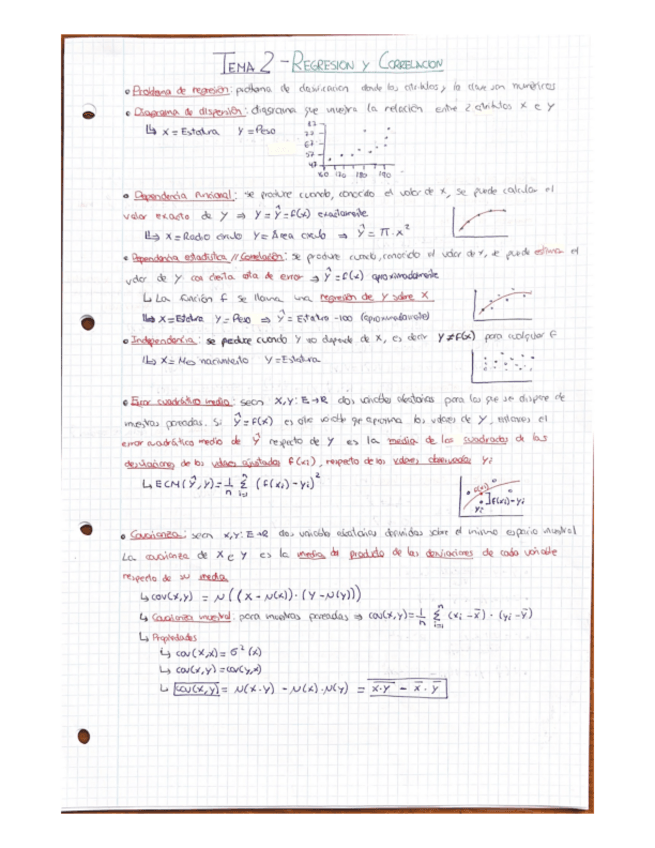 TEMA 2 - REGRESION Y CORRELACION
• Problema de regresión: problema de clasificación donde los atributos y la clase son numéricos
• Diagrama de dispersión: diagrama que muestra la relación entre 2 atributos X e Y
↳ X = Estatura Y = Peso
• Dependencia funcional: se produce cuando, conocido el valor de X, se puede calcular el
valor exacto de Y ⇒ Y = Ŷ = f(x) exactamente
↳ X = Radio círculo Y = Área círculo ⇒ Ŷ = π · x²
• Dependencia estadística // Correlación: se produce cuando, conocido el valor de X, se puede estimar el
valor de Y con cierta cota de error ⇒ Ŷ = f(x) aproximadamente
↳ La función f se llama una regresión de Y sobre X
↳ X = Estatura Y = Peso ⇒ Ŷ = Estatura - 100 (aproximadamente)
• Independencia: se produce cuando Y no depende de X, es decir Y ≠ f(x) para cualquier f
↳ X = Mes nacimiento Y = Estatura
• Error cuadrático medio: sean X, Y: E → R dos variables aleatorias para las que se dispone de
muestras pareadas. Si Ŷ = f(x) es otra variable que aproxima los valores de Y, entonces el
error cuadrático medio de Ŷ respecto de Y es la media de los cuadrados de las
desviaciones de los valores ajustados f(xi), respecto de los valores observados yi
↳ ECM(Ŷ, Y) = 1/n Σ (f(xi) - yi)²
f(xi)
f(xi) - yi
yi
• Covarianza: sean X, Y: E → R dos variables aleatorias definidas sobre el mismo espacio muestral
La covarianza de X e Y es la media de producto de las desviaciones de cada variable
respecto de su media
↳ cov(X, Y) = μ((X - μ(X)) · (Y - μ(Y)))
↳ Covarianza muestral: para muestras pareadas ⇒ cov(x, y) = 1/n Σ (xi - x̄) · (yi - ȳ)
↳ Propiedades
↳ cov(X, X) = σ²(X)
↳ cov(X, Y) = cov(Y, X)
↳ cov(X, Y) = μ(X · Y) - μ(X) · μ(Y) = x·y - x̄ · ȳ